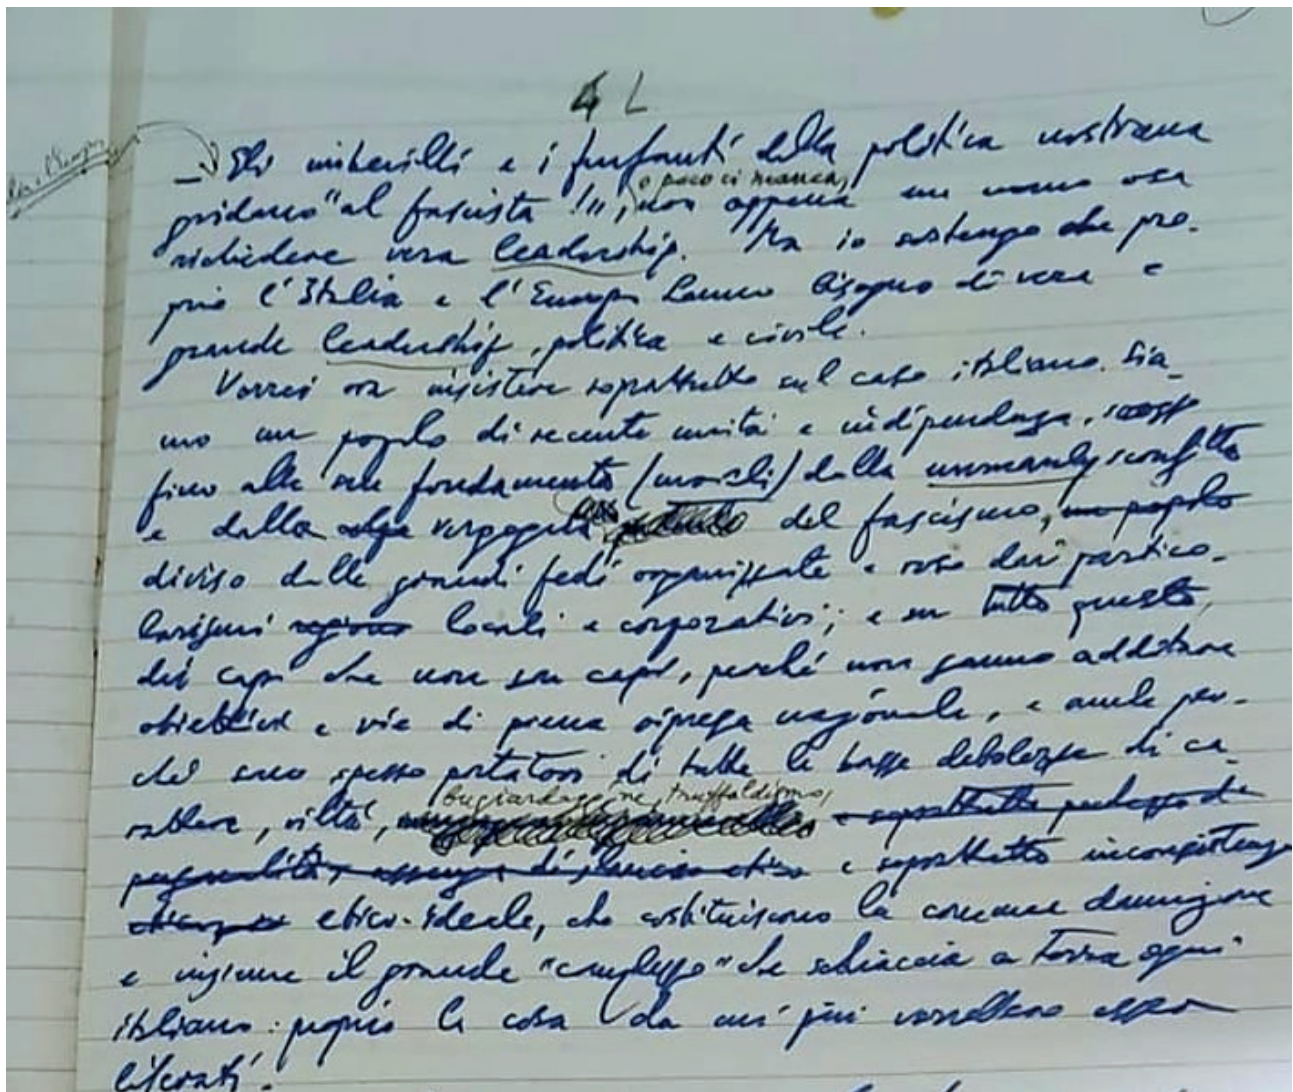 4 L
– Gli imbecilli e i furfanti della politica nostrana
o poco ci manca,
gridano "al fascista!", non appena un uomo osa
richiedere vera leadership. Ma io sostengo che pro-
prio l'Italia e l'Europa hanno bisogno di vera e
grande leadership, politica e civile.
Vorrei ora insistere soprattutto sul caso italiano. Sia-
mo un popolo di recente unità e indipendenza,
fino alle sue fondamenta (morali) dalla sconfitta
e dalla vergogna del fascismo, un popolo
diviso dalle grandi fedi organizzate e roso dai partico-
larismi locali e corporativi; e su tutto questo,
dei capi che non son capi, perché non sanno additare
obiettivi e vie di piena ripresa nazionale, e anche per-
ché sono spesso portatori di tutte le basse debolezze di ca-
bugiardaggine, truffaldismo,
rattere, viltà, e soprattutto pochezza di
personalità, assenza di slancio etico e soprattutto inconsistenza
etico-ideale, che costituiscono la comune dannazione
e insieme il grande "complesso" che schiaccia a terra ogni
italiano: proprio la cosa da cui più vorrebbero esser
liberati.